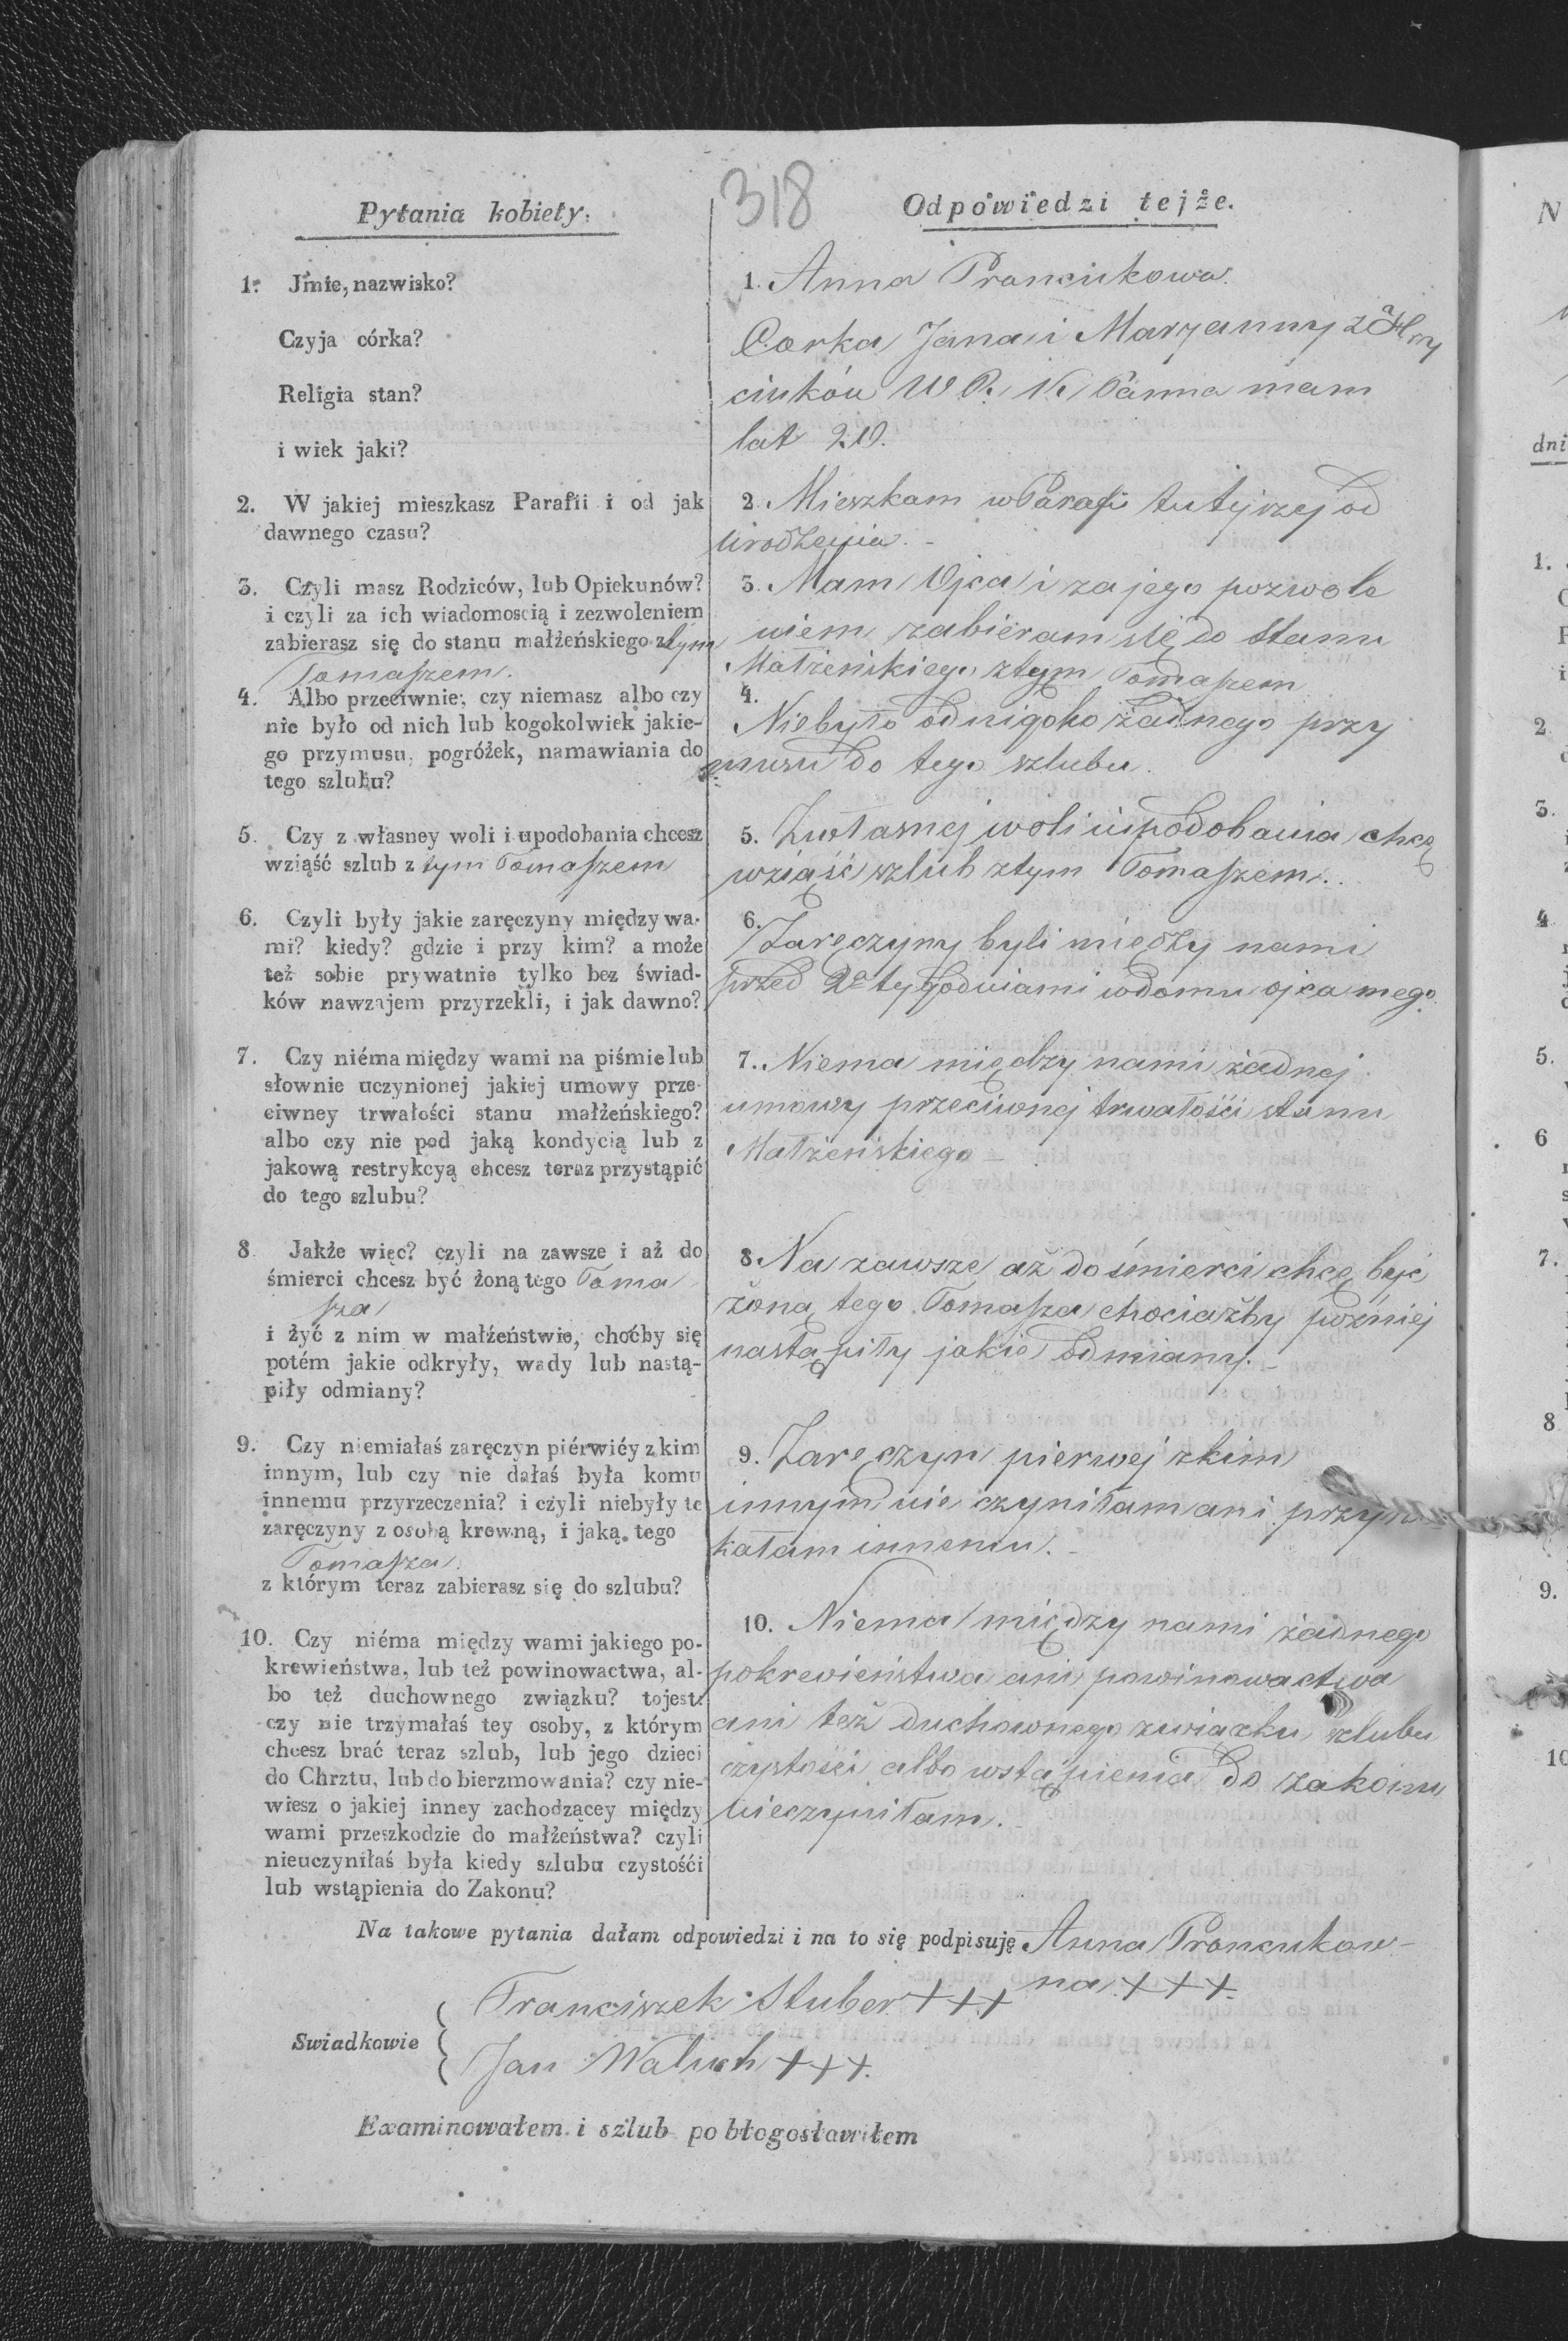 318
Pytania kobiety.
1. Jmie, nazwisko?
Czyja córka?
Religia stan?
i wiek jaki?
2. W jakiej mieszkasz Parafii i od jak
dawnego czasu?
3. Czyli masz Rodziców, lub Opiekunów?
i czyli za ich wiadomoscią i zezwoleniem
zabierasz się do stanu małżeńskiego z tym
Tomaszem.
4. Albo przeciwnie, czy niemasz albo czy
nie było od nich lub kogokolwiek jakie-
go przymusu, pogróżek, namawiania do
tego szlubu?
5. Czy z własney woli i upodobania chcesz
wziąść szlub z tym Tomaszem
6. Czyli były jakie zaręczyny między wa-
mi? kiedy? gdzie i przy kim? a może
też sobie prywatnie tylko bez świad-
ków nawzajem przyrzekli, i jak dawno?
7. Czy niéma między wami na piśmie lub
słownie uczynionej jakiej umowy prze-
ciwney trwałości stanu małżeńskiego?
albo czy nie pod jaką kondycią lub z
jakową restrykcyą chcesz teraz przystąpić
do tego szlubu?
8. Jakże więc? czyli na zawsze i aż do
śmierci chcesz być żoną tego Toma
sza
i żyć z nim w małżeństwie, choćby się
potém jakie odkryły, wady lub nastą-
piły odmiany?
9. Czy niemiałaś zaręczyn piérwiéy z kim
innym, lub czy nie dałaś była komu
innemu przyrzeczenia? i czyli niebyły te
zaręczyny z osobą krewną, i jaką. tego
Tomasza.
z którym teraz zabierasz się do szlubu?
10. Czy niéma między wami jakiego po-
krewieństwa, lub też powinowactwa, al-
bo też duchownego związku? tojest:
czy nie trzymałaś tey osoby, z którym
chcesz brać teraz szlub, lub jego dzieci
do Chrztu, lub do bierzmowania? czy nie-
wiesz o jakiej inney zachodzącey między
wami przeszkodzie do małżeństwa? czyli
nieuczyniłaś była kiedy szlubu czystośći
lub wstąpienia do Zakonu?
Odpowiedzi tejże.
1. Anna Prancukowa.
Corka Jana i Maryanny z
ciuków W P. K. Panna mam
lat
2. Mieszkam w Parafii tutejszej od
urodzenia. -
3. Mam Ojca i za jego pozwole
niem zabieram się do stanu
Małżeńskiego ztym Tomaszem
4.
Niebyło od nigoko żadnego przy
musu do tego szlubu.
5. Zwłasnej woli i upodobania chcę
wziąść szlub ztym Tomaszem.
6. Zaręczyny byli między nami
przed 2a tygodniami wdomu ojca mego.
7. Niema między nami żadnej
umowy przeciwnej trwałośći stanu
Małżeńskiego -
8. Na zawsze aż do śmierci chcę być
żoną tego Tomasza chociażby poźniej
nastąpiły jakie odmiany. -
9. Zaręczyn pierwej zkim
innym nie czyniłam ani przyrze
kałam innemu. -
10. Niema między nami żadnego
pokrevieństwa ani powinowactwa
ani też duchownego związku, szlubu
czystośći albo wstąpienia do zakonu
nieczyniłam.
Na takowe pytania dałam odpowiedzi i na to się podpisuję Anna Prancukow-
na +++
Swiadkowie
Franciszek Stuber +++
Jan Waluch +++.
Examinowałem i szlub pobłogosławiłem
N
dni
1.
2
3.
4
5.
6
7.
8
9.
10